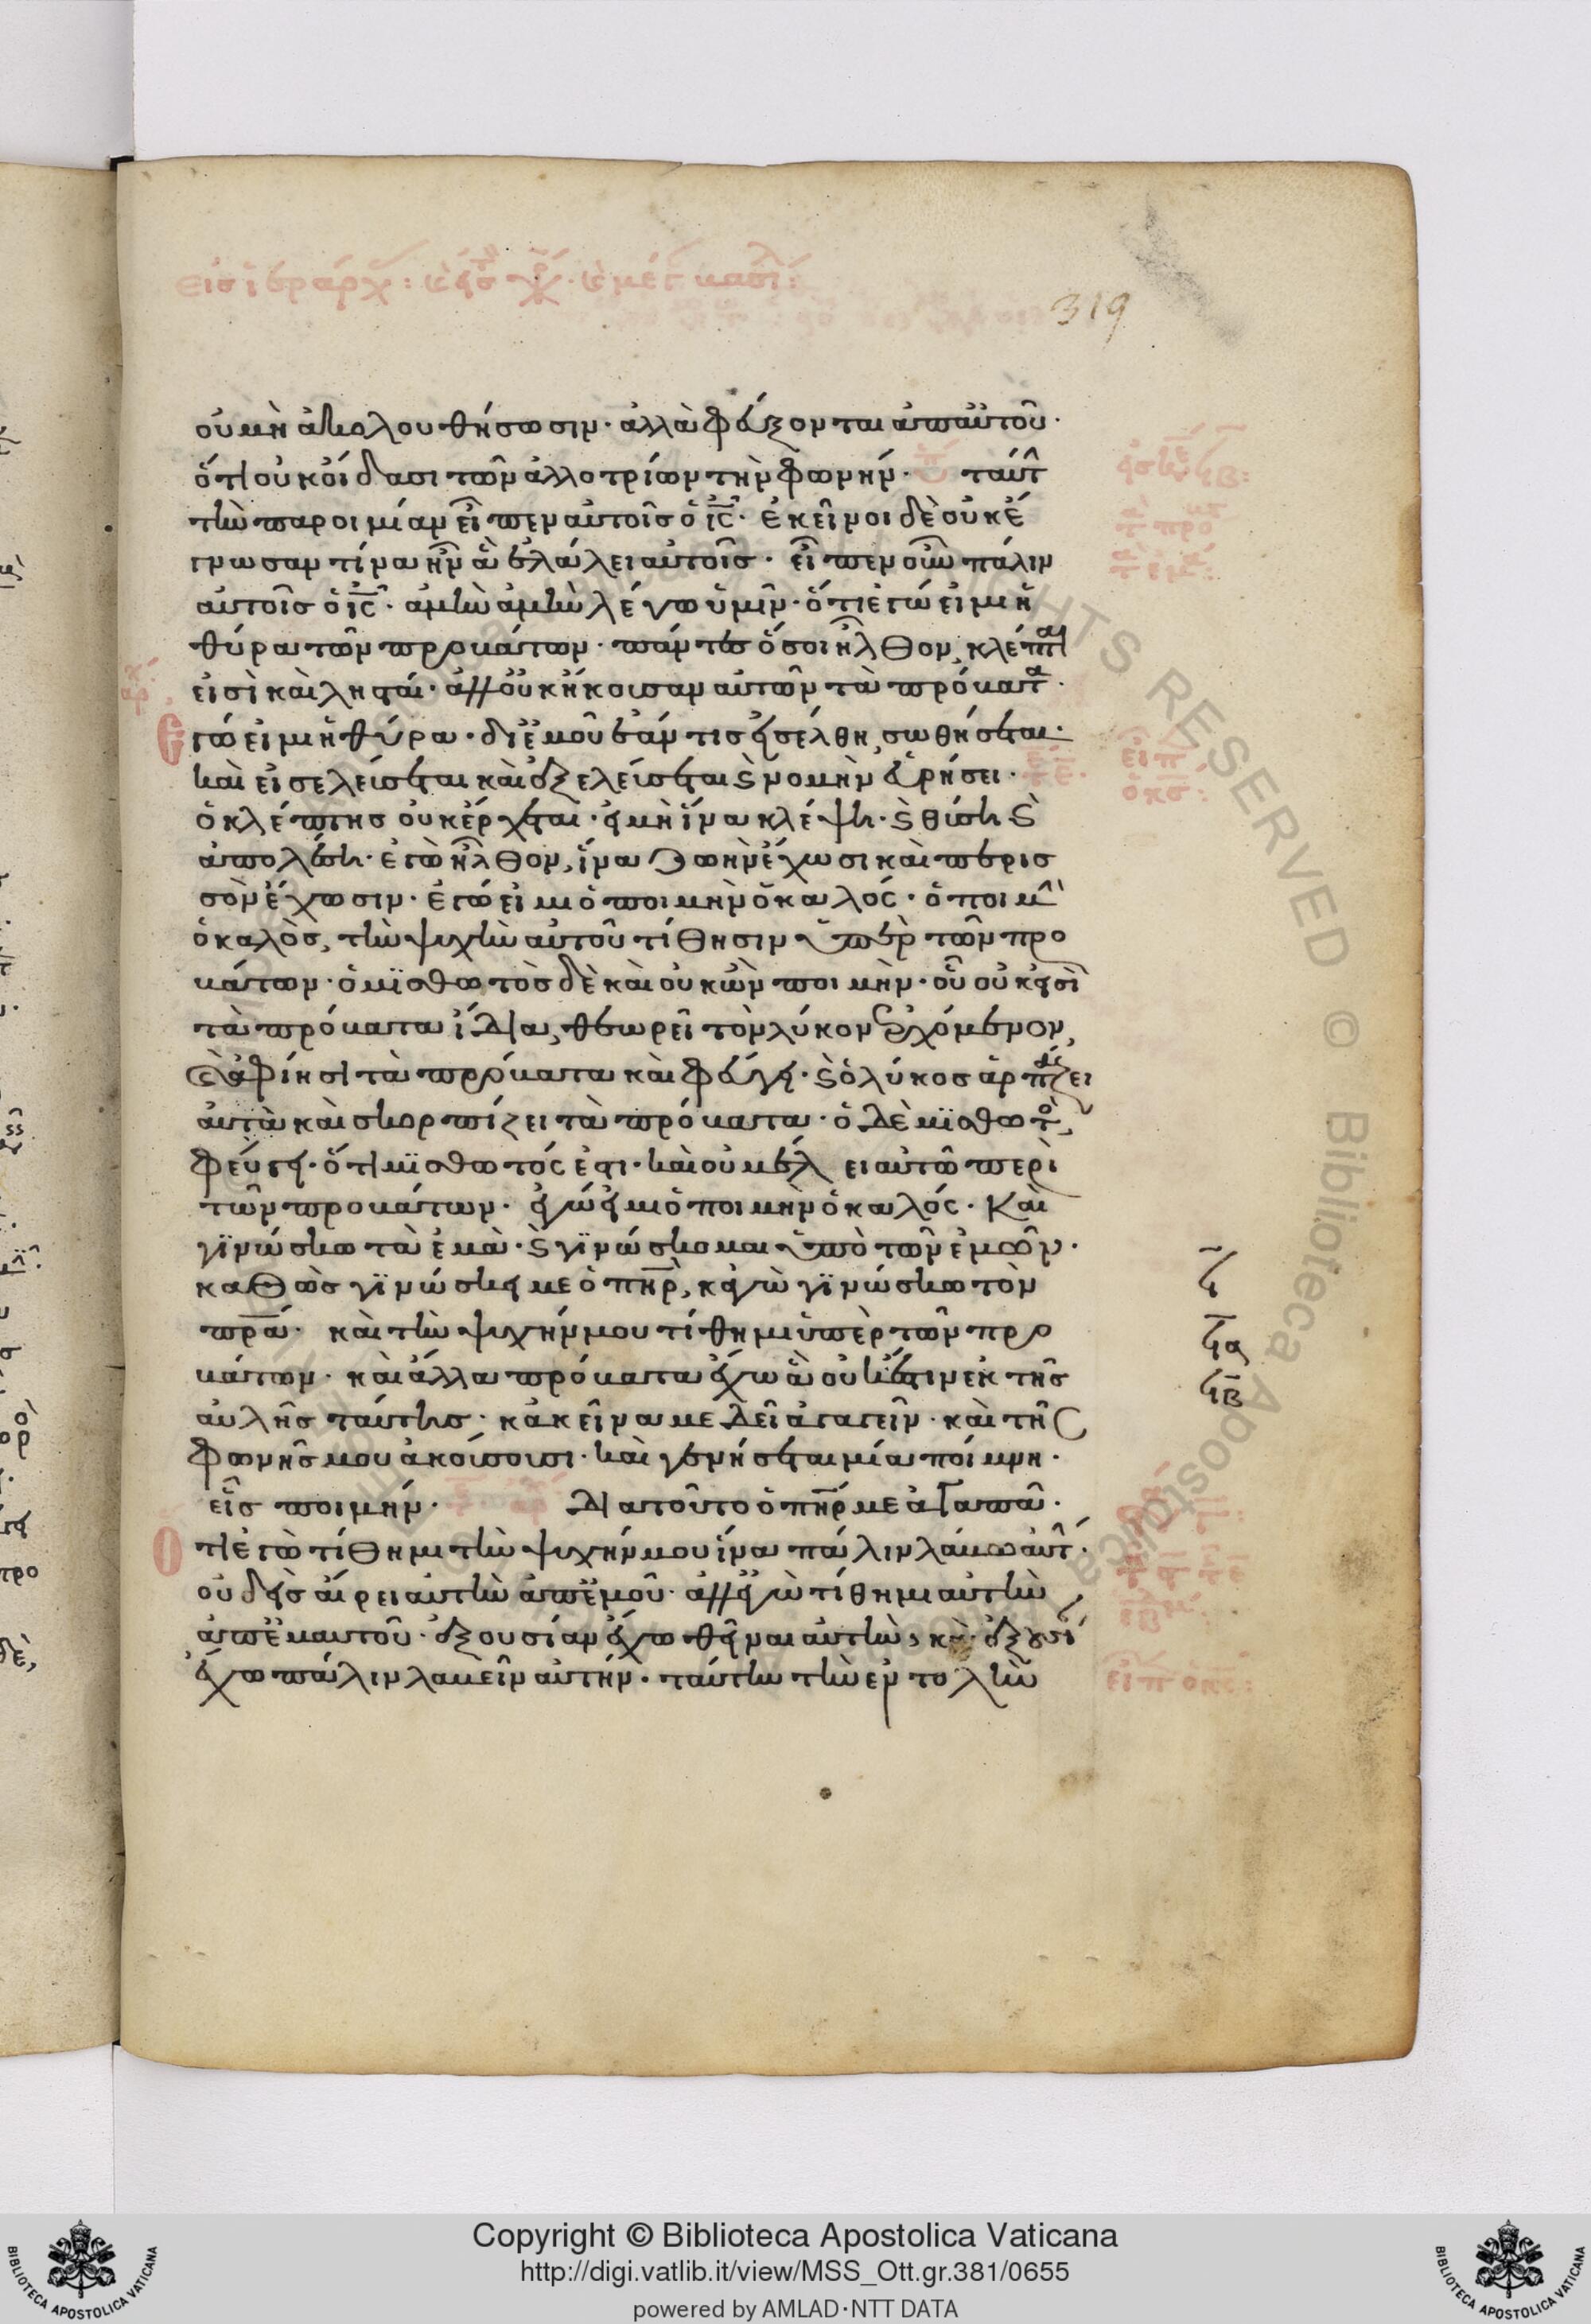 319
οὐ μὴ ἀκολουθήσωσιν· ἀλλὰ φεύξονται ἀπ' αὐτοῦ·
ὅτι οὐκ οἴδασι τῶν ἀλλοτρίων τὴν φωνήν· ταύτ
τὴν παροιμίαν εἶπεν αὐτοῖς ὁ ις· ἐκεῖνοι δὲ οὐκ ἔ
γνωσαν τίνα ἦν ἃ ἐλάλει αὐτοῖς· εἶπεν οὖν πάλιν
αὐτοῖς ὁ ις· ἀμὴν ἀμὴν λέγω ὑμῖν· ὅτι ἐγώ εἰμι ἡ
θύρα τῶν προβάτων· πάντες ὅσοι ἦλθον, κλέπται
εἰσὶ καὶ λησταί· ἀλλ' οὐκ ἤκουσαν αὐτῶν τὰ πρόβατα·
ἐγώ εἰμι ἡ θύρα· δι' ἐμοῦ ἐάν τις εἰσέλθη, σωθήσεται·
καὶ εἰσελεύσεται καὶ ἐξελεύσεται καὶ νομὴν εὑρήσει·
ὁ κλέπτης οὐκ ἔρχεται· εἰ μὴ ἵνα κλέψη· καὶ θύση καὶ
ἀπολέση· ἐγὼ ἦλθον, ἵνα ζωὴν ἔχωσι καὶ περισ
σὸν ἔχωσιν· ἐγώ εἰμι ὁ ποιμὴν ὁ καλός· ὁ ποιμὴν
ὁ καλὸς, τὴν ψυχὴν αὐτοῦ τίθησιν ὑπὲρ τῶν προ
βάτων· ὁ μϊσθωτὸς δὲ καὶ οὐκ ὢν ποιμὴν· οὗ οὐκ εἰσὶ
τὰ πρόβατα ἴδια, θεωρεῖ τὸν λύκον ἐρχόμενον,
καὶ ἀφίησι τὰ πρόβατα καὶ φεύγει· καὶ ὁ λύκος ἁρπάζει
αὐτὰ καὶ σκορπίζει τὰ πρόβατα· ὁ δὲ μϊσθωτὸς,
φεύγει· ὅτι μϊσθωτός ἐστι· καὶ οὐ μέλει αὐτῶ περὶ
τῶν προβάτων· ἐγώ εἰμι ὁ ποιμὴν ὁ καλός· Καὶ
γϊνώσκω τὰ ἐμὰ· καὶ γϊνώσκομαι ὑπὸ τῶν ἐμῶν·
καθὼς γϊνώσκει με ὁ πηρ, κἀγὼ γϊνώσκω τὸν
πρα· καὶ τὴν ψυχήν μου τίθημι ὑπὲρ τῶν προ
βάτων· καὶ ἄλλα πρόβατα ἔχω ἃ οὐκ ἔστιν ἐκ τῆς
αὐλῆς ταύτης· κἀκεῖνα με δεῖ ἀγαγεῖν· καὶ τῆς
φωνῆς μου ἀκούσουσι· καὶ γενήσεται μία ποίμνη·
εἷς ποιμήν· Διατοῦτο ὁ πηρ με ἀγαπᾶ·
Ὅτι ἐγὼ τίθημι τὴν ψυχήν μου ἵνα πάλιν λάβω αὐτ·
οὐδεὶς αἴρει αὐτὴν ἀπ' ἐμοῦ· ἀλλ' ἐγὼ τίθημι αὐτὴν
ἀπ' ἐμαυτοῦ· ἐξουσίαν ἔχω θεῖναι αὐτὴν, καὶ ἐξουσί
ἔχω πάλιν λαβεῖν αὐτήν· ταύτην τὴν ἐντολὴν
Copyright © Biblioteca Apostolica Vaticana
http://digi.vatlib.it/view/MSS_Ott.gr.381/0655
powered by AMLAD·NTT DATA